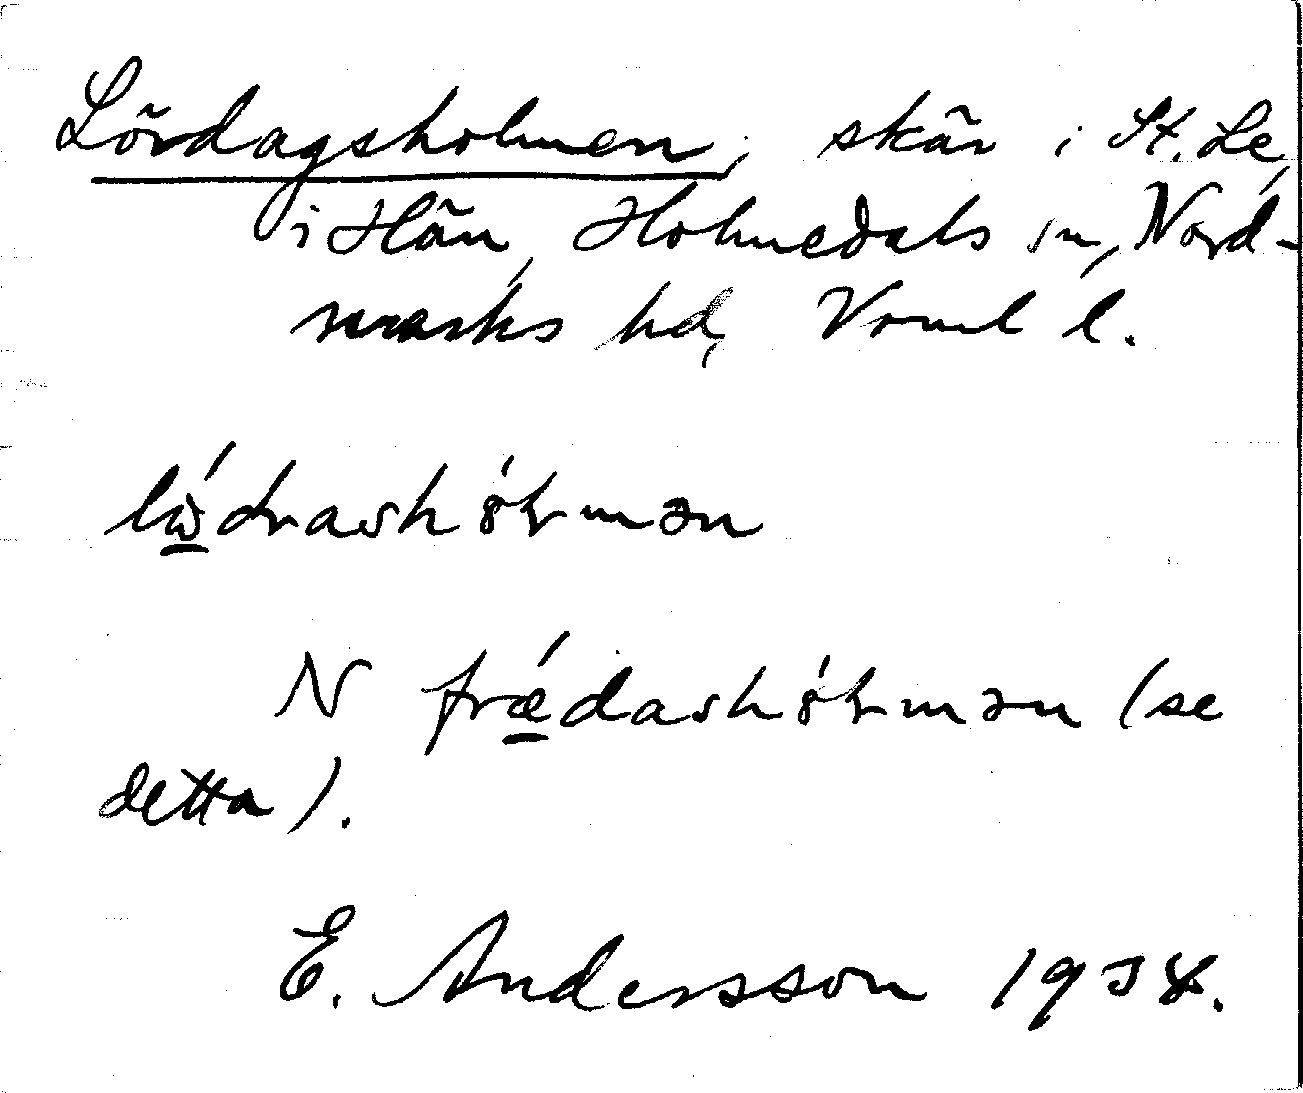 Lördagsholmen, skär i St. Le,
i Hän, Holmedals sn, Nord-
marks hd, Vrml l.
lǿdrashólmən
N frǽdashólmən (se
detta).
E. Andersson 1934.